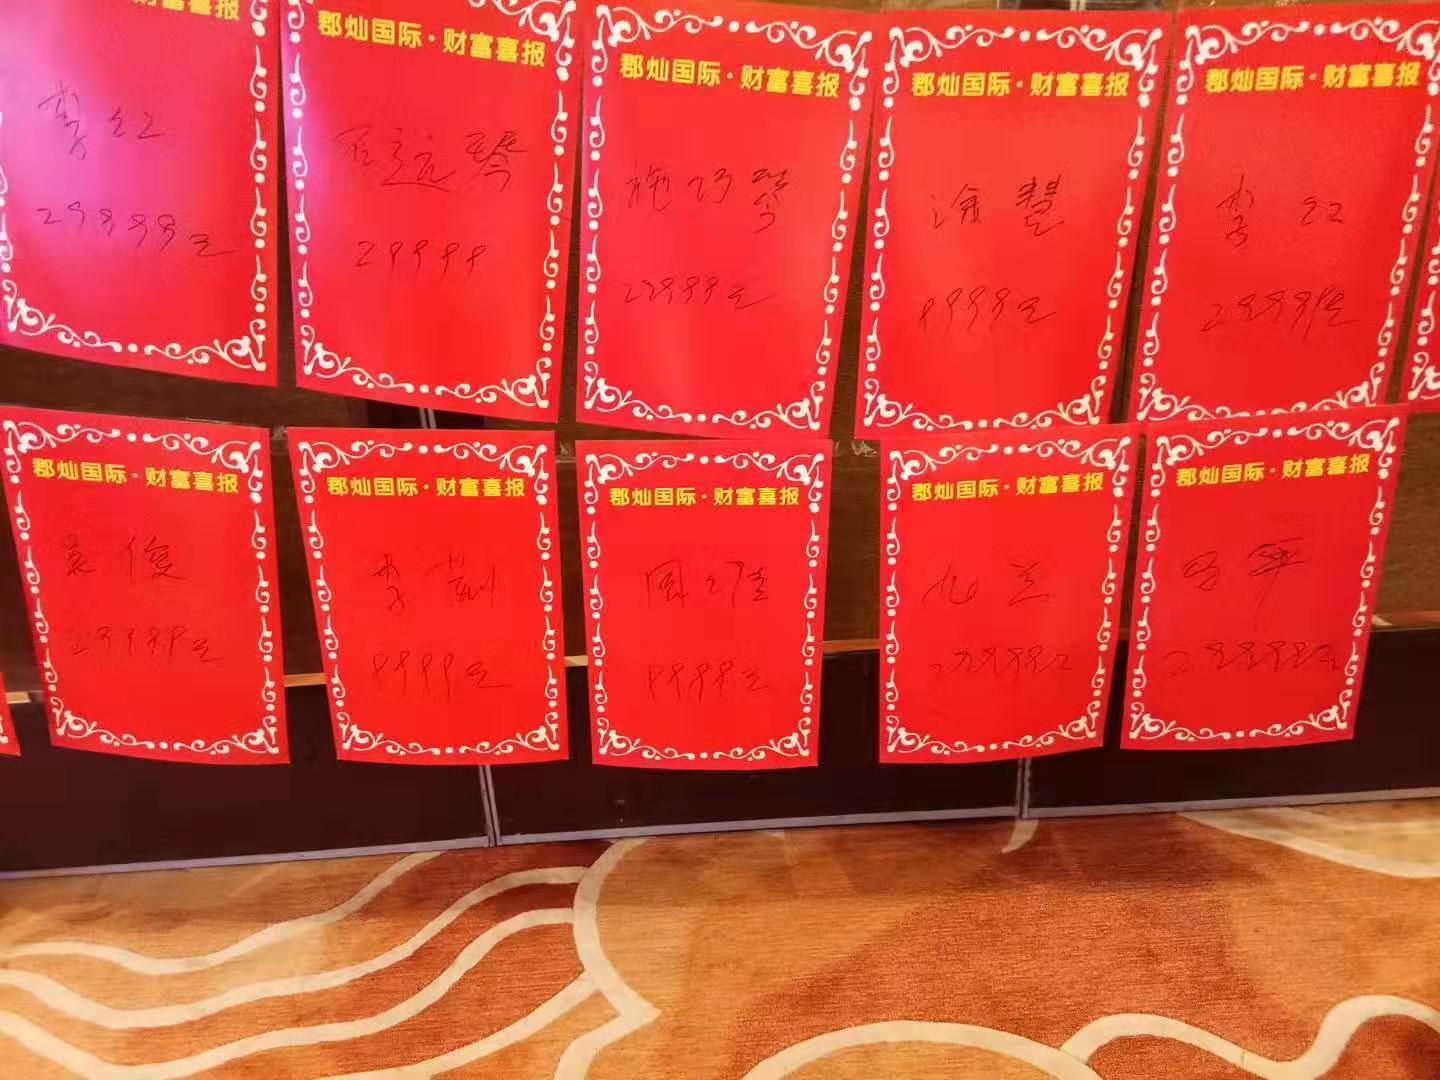 郡灿国际·财富喜报
李红
29999元
郡灿国际·财富喜报
29999
郡灿国际·财富喜报
施巧琴
29999元
郡灿国际·财富喜报
涂慧
9999元
郡灿国际·财富喜报
李红
29999元
郡灿国际·财富喜报
吴俊
29999元
郡灿国际·财富喜报
李
9999元
郡灿国际·财富喜报
9999元
郡灿国际·财富喜报
29999元
郡灿国际·财富喜报
29999元